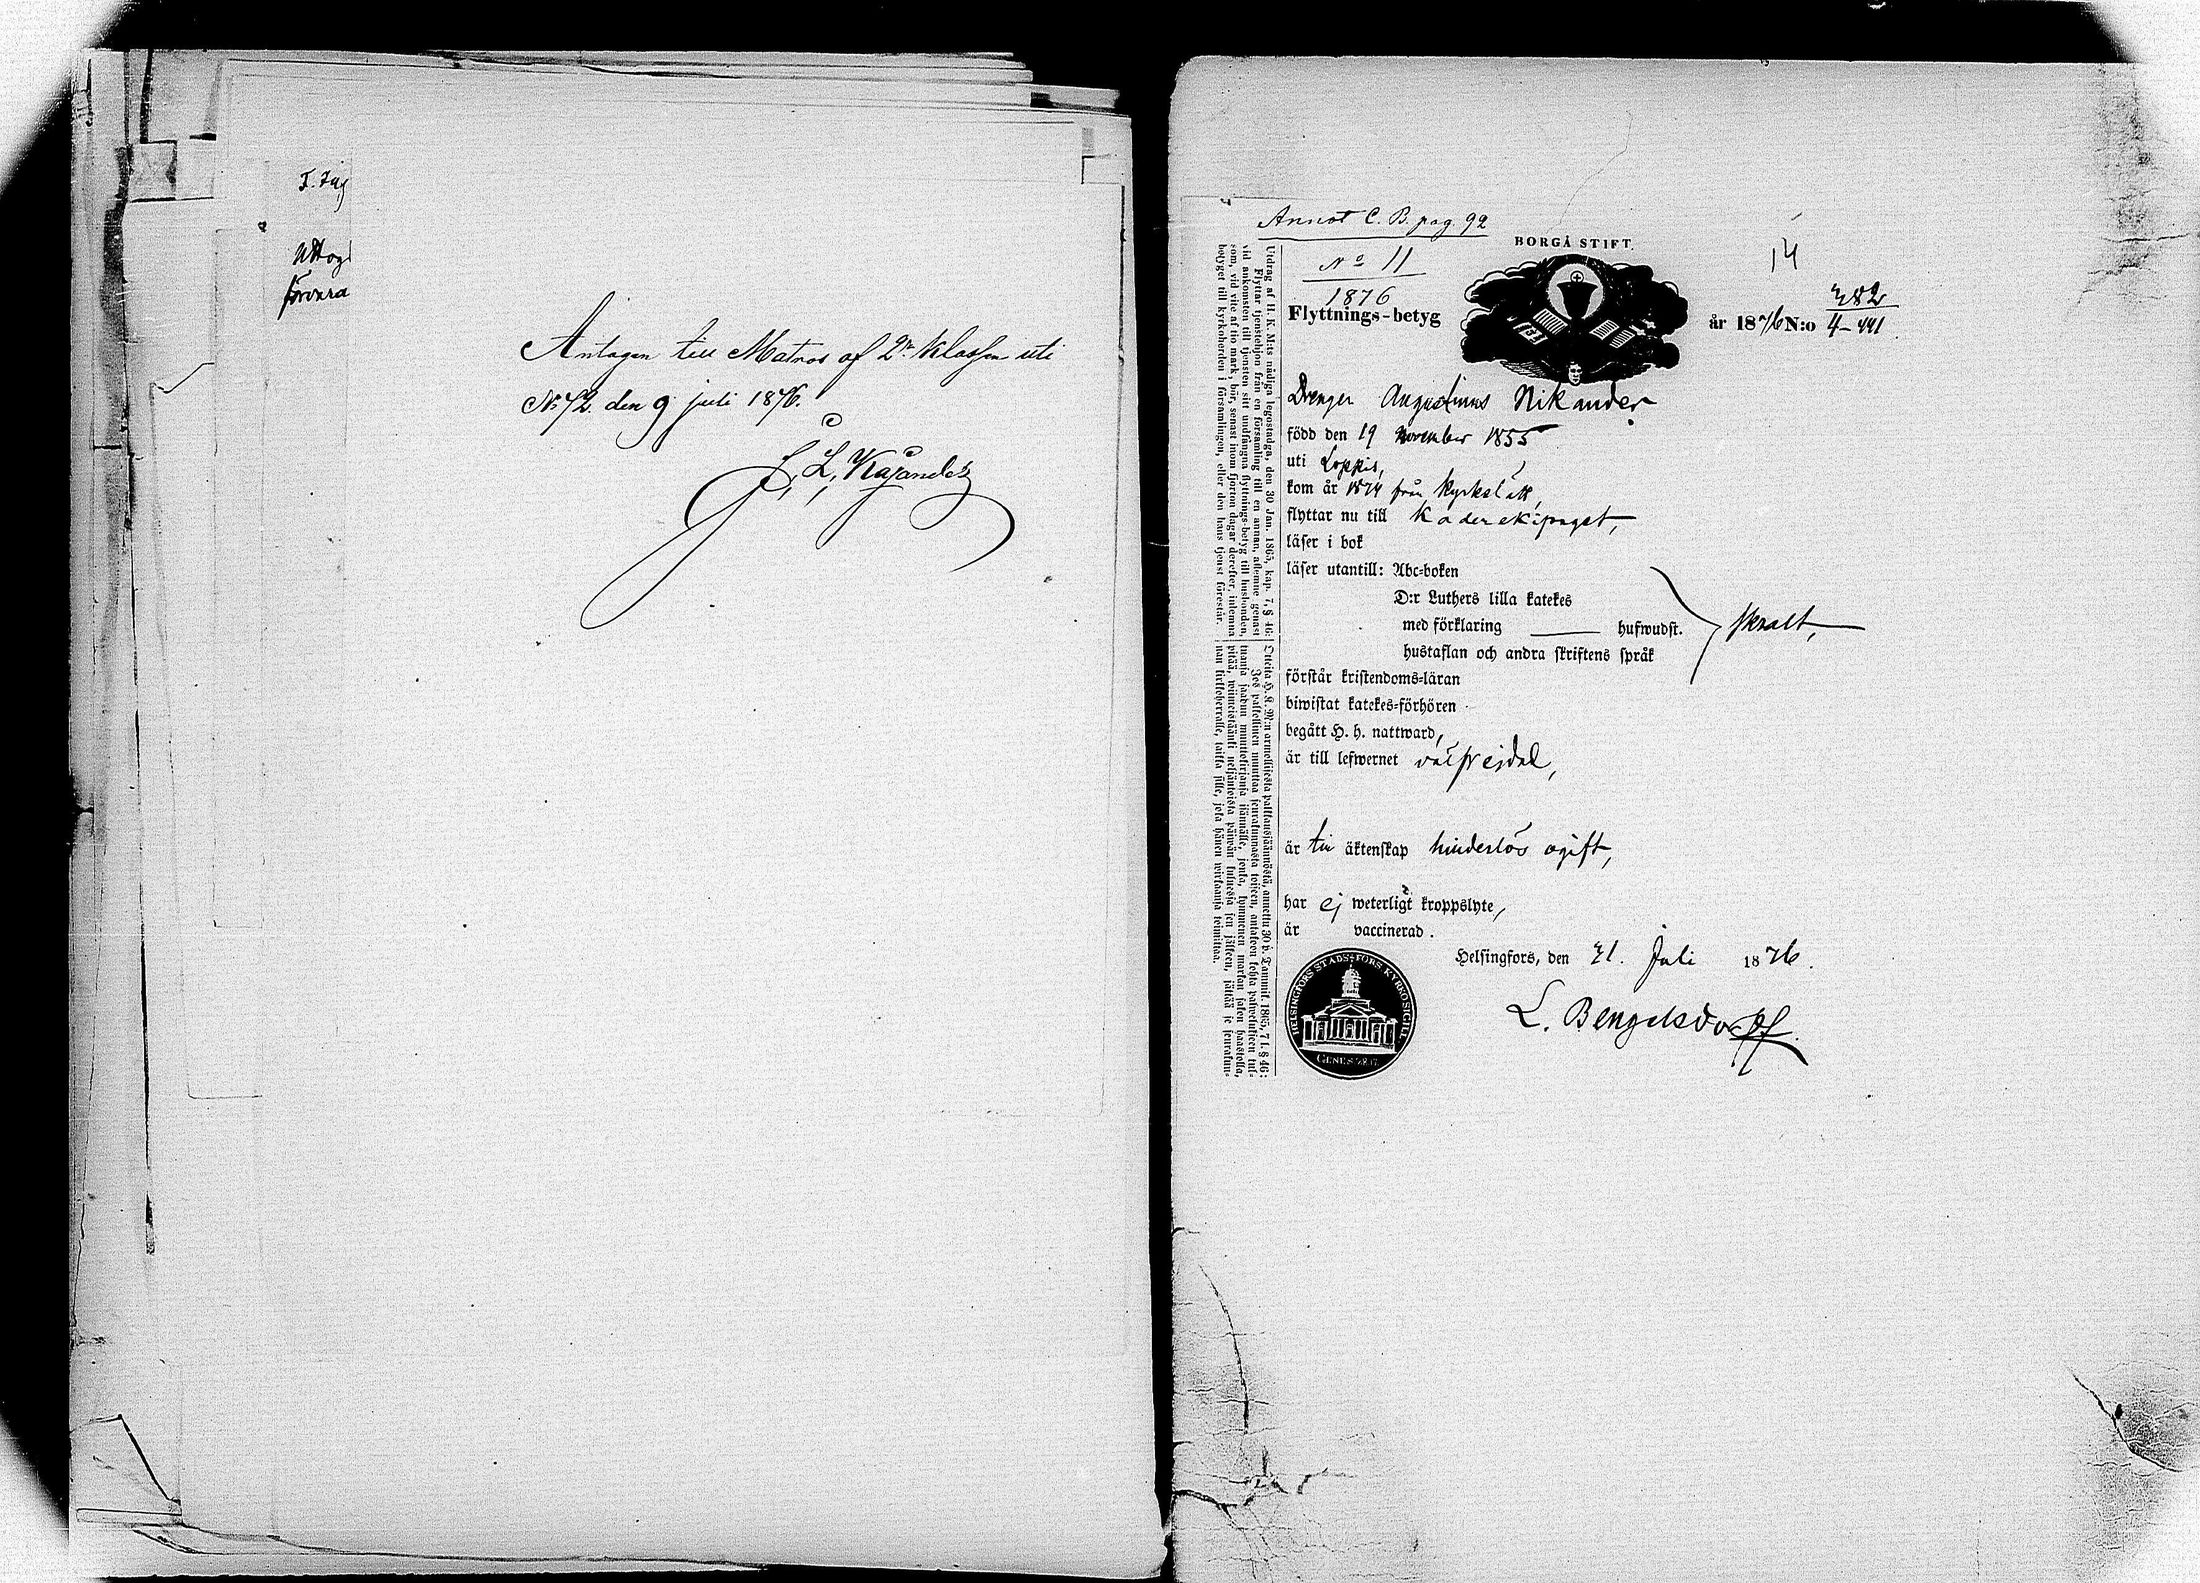 Antagen till Matros af 2ra Klassen uti
No 72 den 9 juli 1876.
J. L. Kajander
Annot C. B. pag. 92
No 11
1876
BORGÅ STIFT.
14
Flyttnings-betyg
år 1876 N:o
Drengen Augustinus Nikander
född den 19 november 1855
uti Loppis,
kom år 1874 från Kyrkslätt,
flyttar nu till Kaderekipaget,
läser i bok
läser utantill: Abc-boken
D:r Luthers lilla katekes
med förklaring hufwudst.
hustaflan och andra skriftens språk
förstår kristendoms-läran
biwistat katekes-förhören
begått H. h. nattward,
är till lefwernet välfrejdad,
är till äktenskap hinderlös ogift,
har ej weterligt kroppslyte,
är vaccinerad.
Helsingfors, den 21. Juli 1876.
L. Bengelsdorff
Utdrag af H. K. M:ts nådiga legostadga, den 30 Jan. 1865, kap. 7, § 46:
Flyttar tjenstehjon från en församling till en annan, aflemne genast
vid ankomsten till tjensten sitt undfångna flyttnings-betyg till husbonden,
som, vid vite af tio mark, bör, senast inom fjorton dagar derefter, inlemna
betyget till kyrkoherden i församlingen, eller den hans tjenst förestår.
HELSINGFORS STADS-FÖRS. KYRKOSIGILL